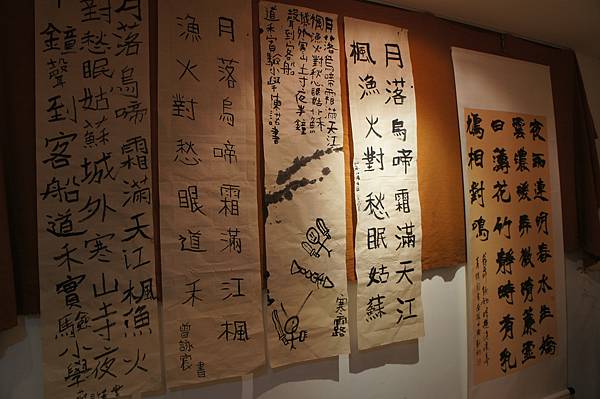 夜雨連明春水生嬌
雲濃暖弄微晴簾虛
日薄花竹靜時有乳
鳩相對鳴
月落烏啼霜滿天江
楓漁火對愁眠姑蘇
月落烏啼霜滿天江
楓漁火對愁眠姑蘇
城外寒山寺夜半鐘
聲到客船
道禾實驗小學陳書
寒露
月落烏啼霜滿江楓
漁火對愁眼道禾
曾詠宸書
月落烏啼霜滿天江楓漁火
對愁眠姑蘇城外寒山寺夜
半鐘聲到客船道禾實驗小學